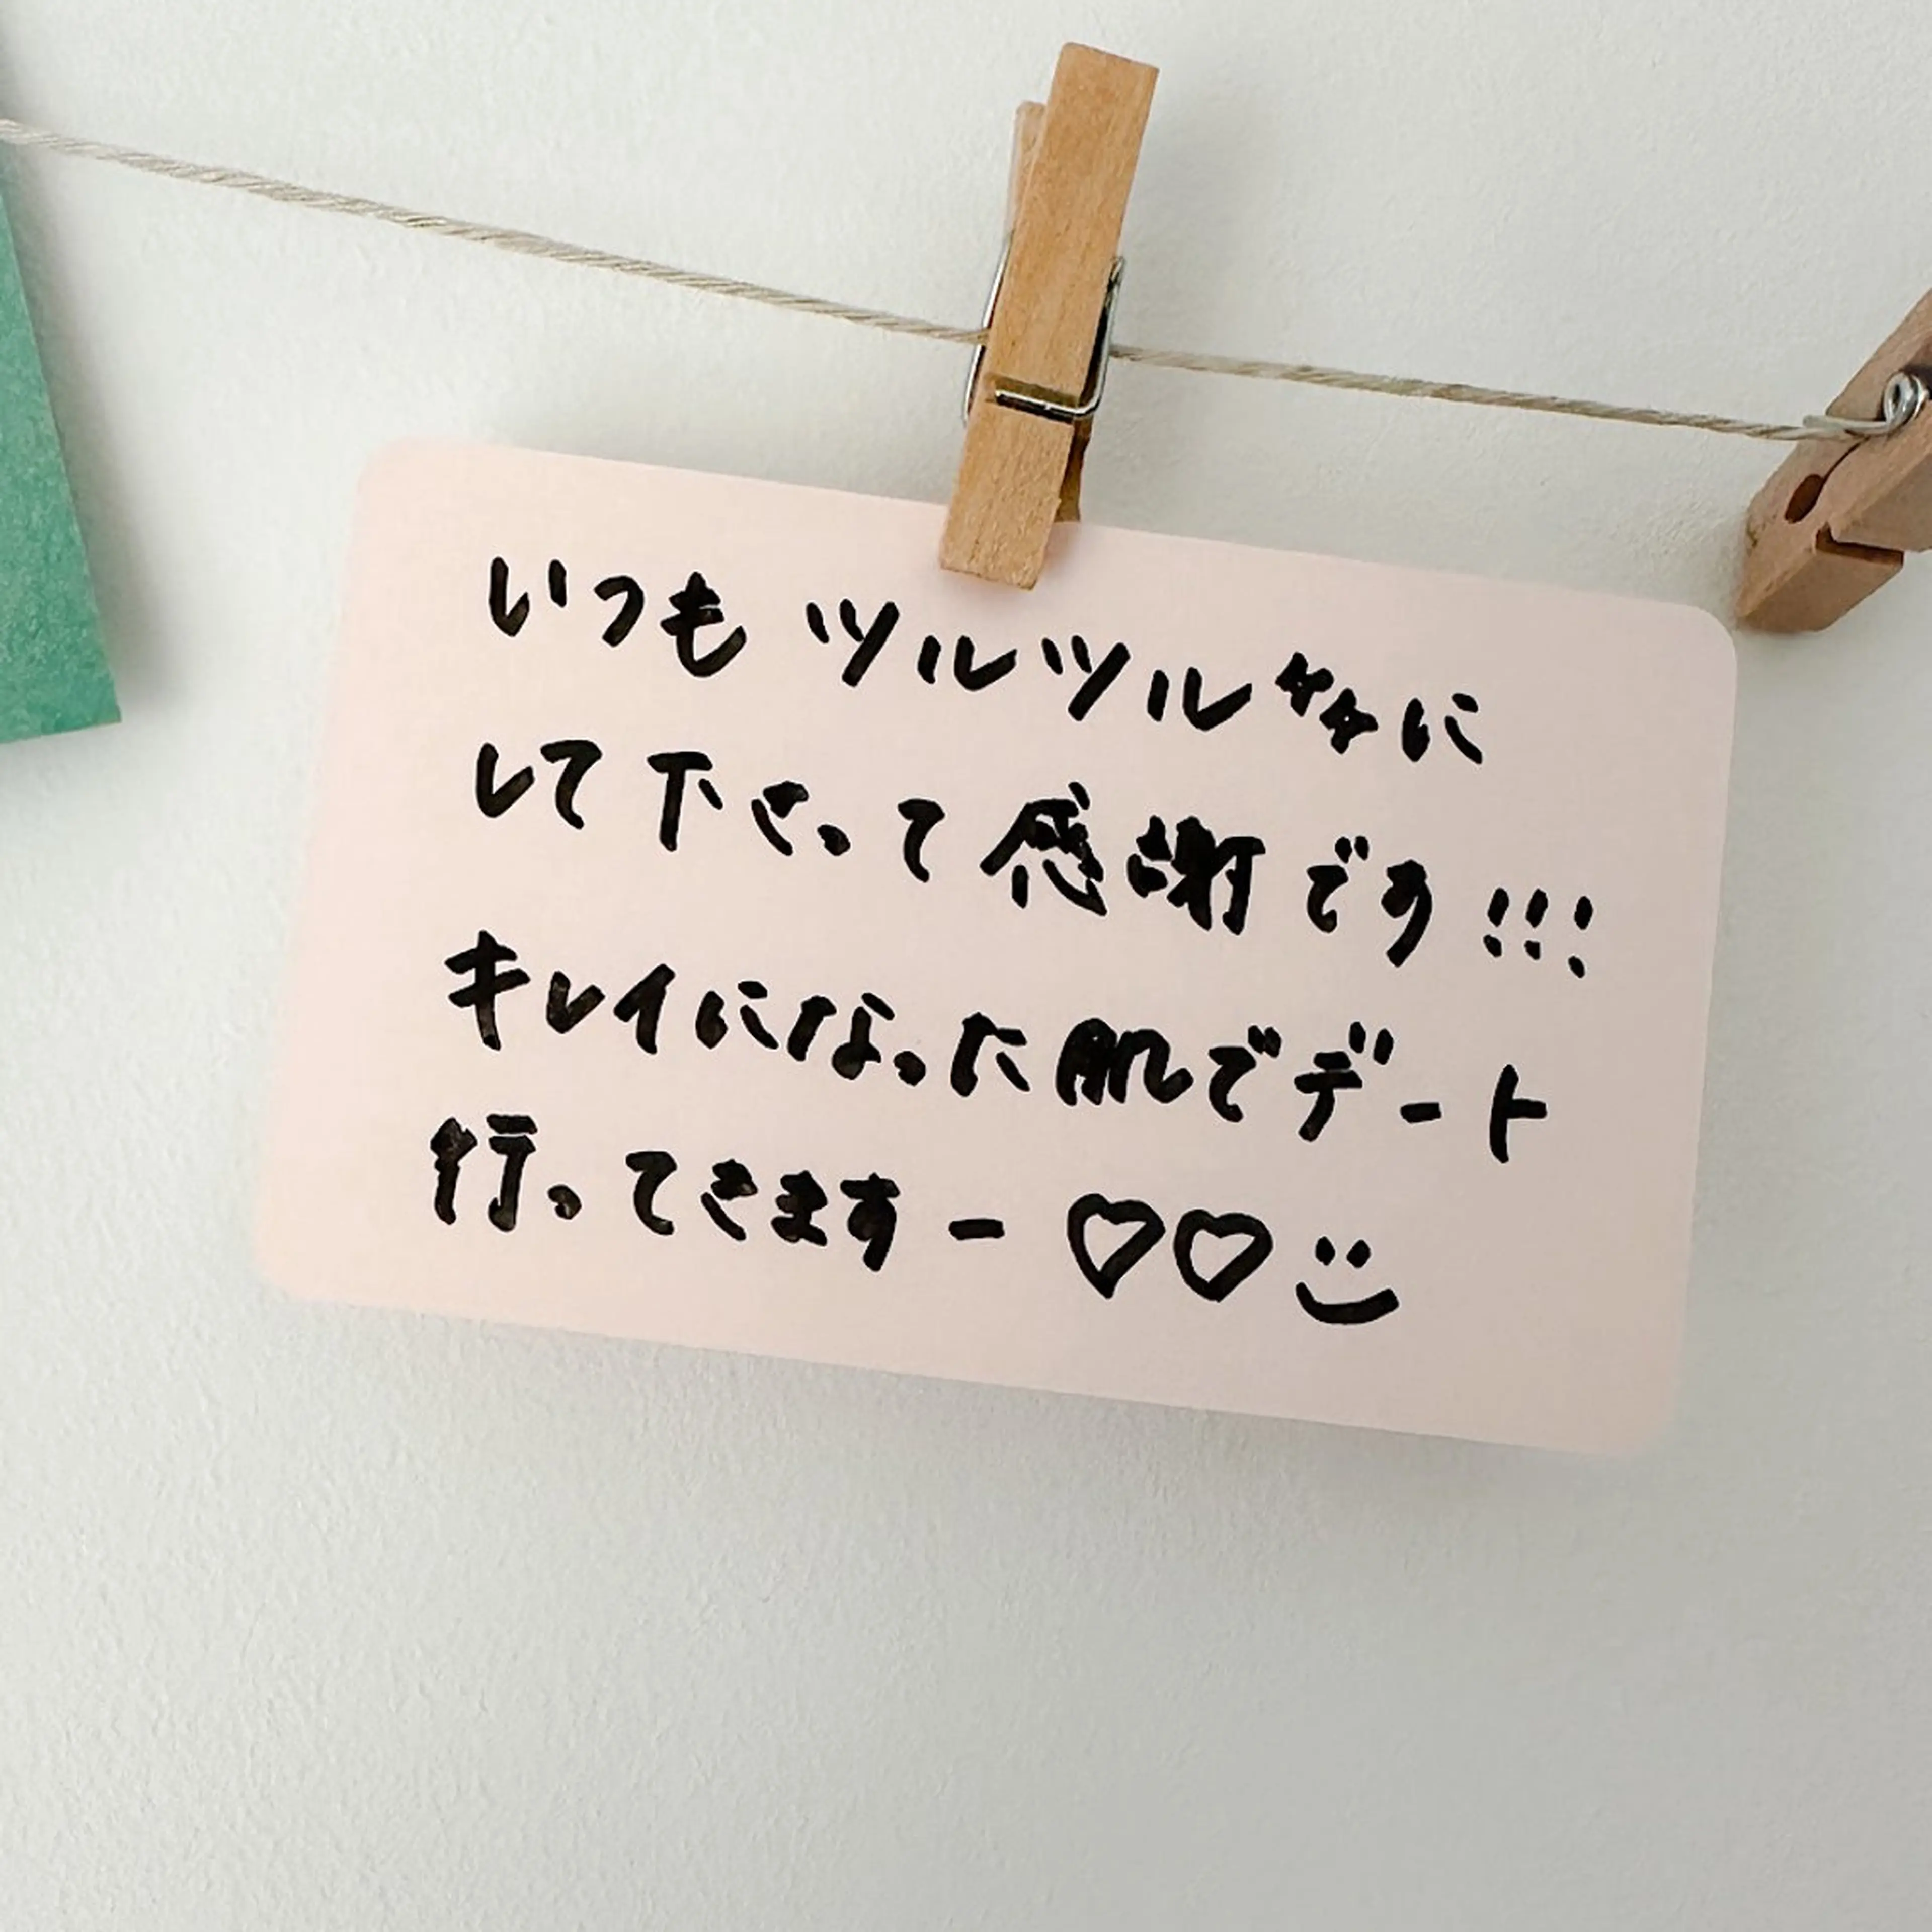 いつも ツルツル✨に
して下さって感謝です!!!
キレイになった肌でデート
行ってきますー♡♡